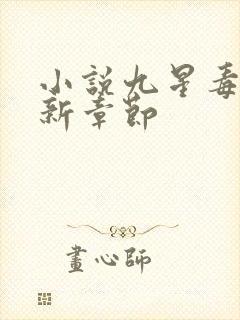 小說九星毒
新章節
畫心師